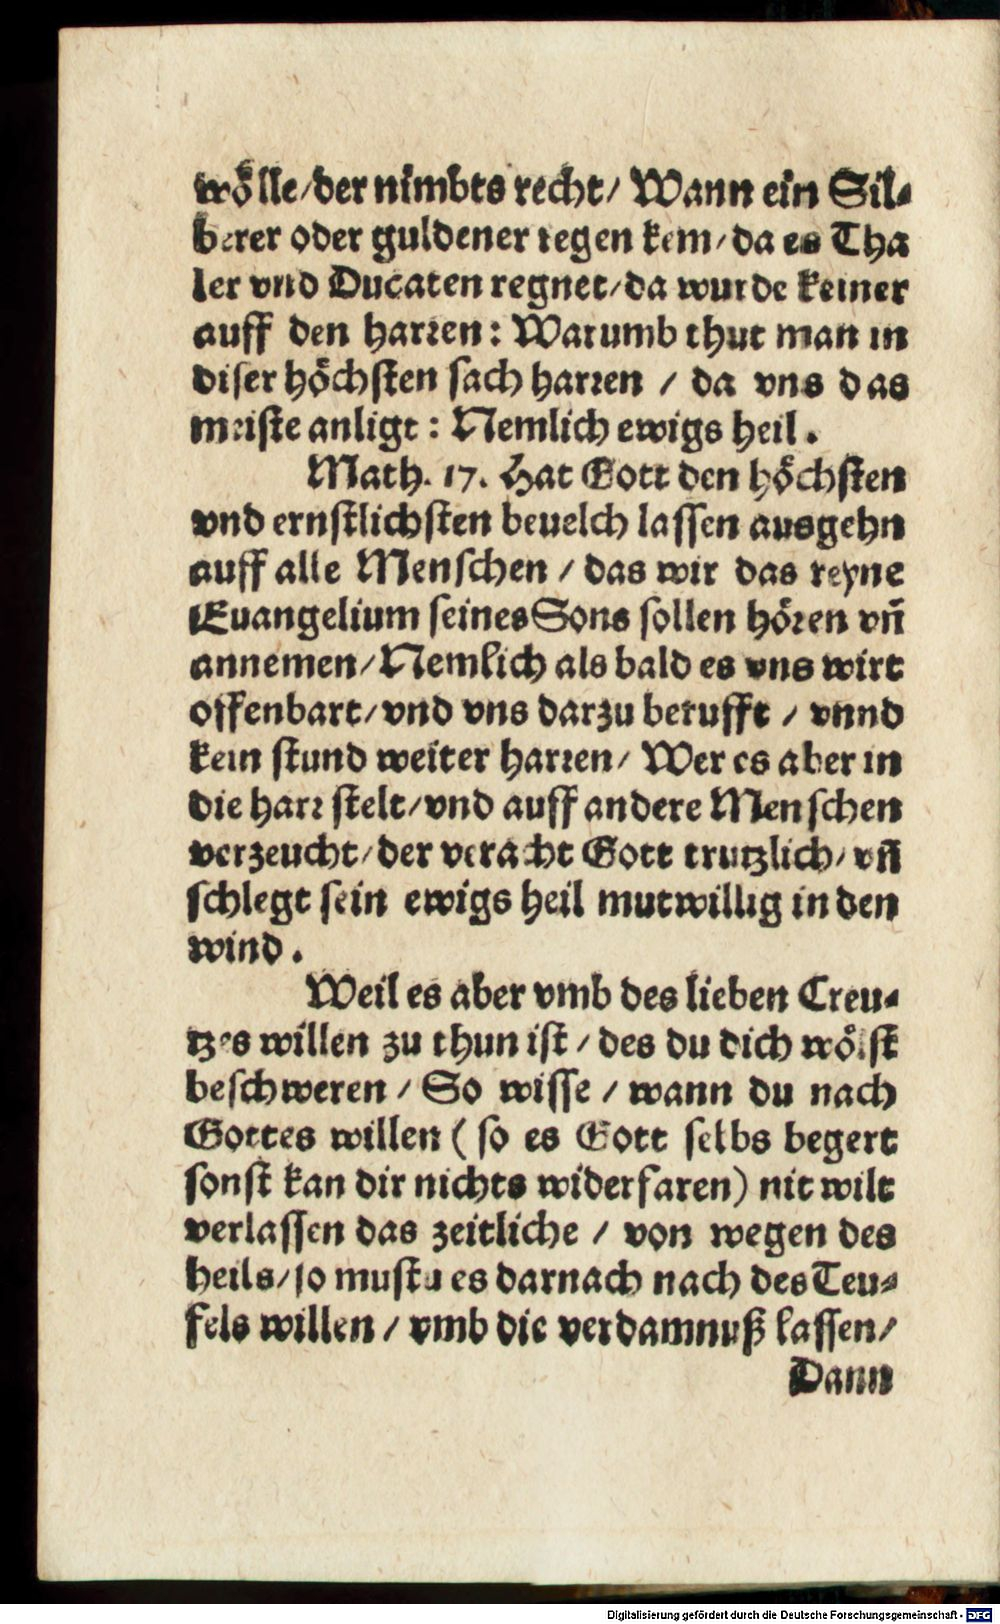 wölle/der nimbts recht/ Wann ein Sil⸗
berer oder guldener regen kem/da es Tha
ler vnd Ducaten regnet/da wurde keiner
auff den harren: Warumb thut man in
diser höchsten sach harren / da vns das
meiste anligt: Nemlich ewigs heil.
Math. 17. Hat Gott den höchsten
vnd ernstlichsten beuelch lassen ausgehn
auff alle Menschen / das wir das reyne
Euangelium seines Sons sollen hören vñ
annemen/Nemlich als bald es vns wirt
offenbart/vnd vns darzu berufft / vnnd
kein stund weiter harren/ Wer es aber in
die harr stelt/vnd auff andere Menschen
verzeucht/der veracht Gott trutzlich/vñ
schlegt sein ewigs heil mutwillig in den
wind.
Weil es aber vmb des lieben Creu⸗
tzes willen zu thun ist / des du dich wölst
beschweren / So wisse / wann du nach
Gottes willen (so es Gott selbs begert
sonst kan dir nichts widerfaren) nit wilt
verlassen das zeitliche / von wegen des
heils/so mustu es darnach nach des Teu⸗
fels willen / vmb die verdamnuß lassen/
Dann
Digitalisierung gefördert durch die Deutsche Forschungsgemeinschaft - DFG